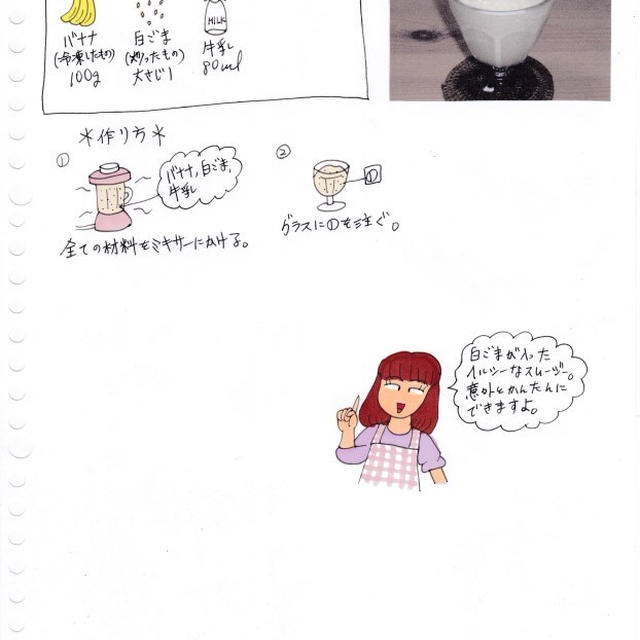 バナナ
(冷凍したもの)
100g
白ごま
(炒ったもの)
大さじ1
MILK
牛乳
80ml
*作り方*
①
バナナ,白ごま,
牛乳
全ての材料をミキサーにかける。
②
①
グラスに①を注ぐ。
白ごまが入った
ヘルシーなスムージー。
意外とかんたんに
できますよ。